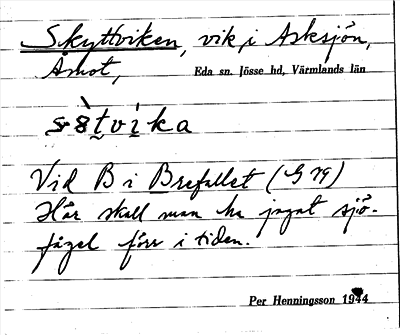 Skyttviken, vik i Asksjön,
Åmot, Eda sn. Jösse hd, Värmlands län
Vid B i Brefallet (G 79)
Här skall man ha jagat sjö-
fågel förr i tiden.
Per Henningsson 1944